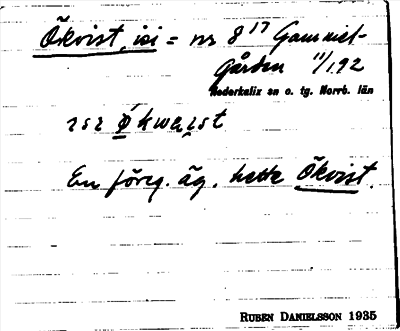 Ökvist, isi = nr 8¹⁷ Gammel-
gården 11/192
Nederkalix sn o. tg. Norrb. län
En föreg. äg. hette Ökvist.
RUBEN DANIELSSON 1935